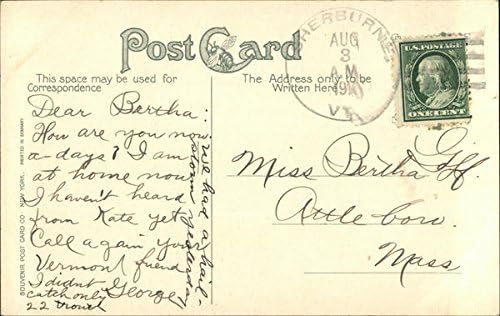 Post Card
This space may be used for
Correspondence
The Address only to be
Written Here
SHERBURNE
AUG
3
A.M.
VT.
U.S. POSTAGE
ONE CENT
PRINTED IN GERMANY
SOUVENIR POST CARD CO. NEW YORK.
Dear Bertha:
How are you now
a-days? I am
at home now
I haven't heard
from Kate yet
Call again your
Vermont friend
George
I didn't
catch only
22 trout
we had a hail-
storm yesterday
Miss Bertha
Attleboro.
Mass